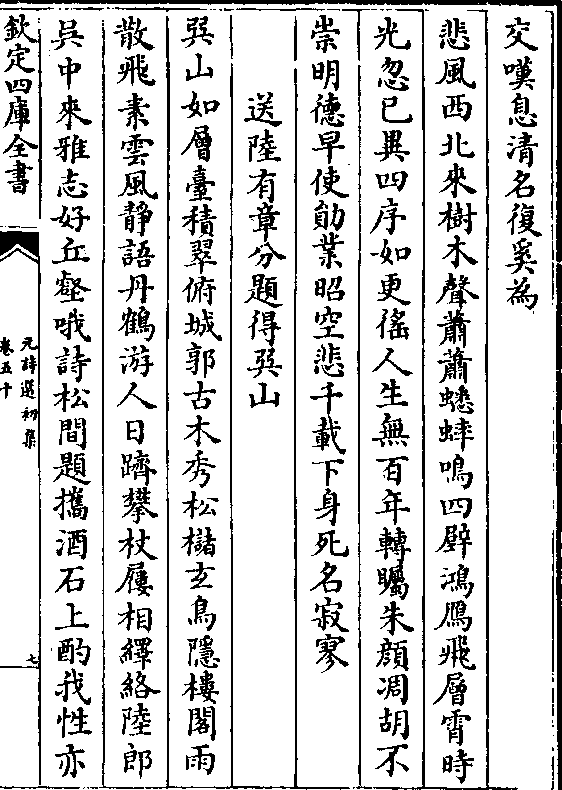 交嘆息清名復奚為
悲風西北來樹木聲蕭蕭蟋蟀鳴四壁鴻鴈飛層霄時
光忽已異四序如更徭人生無百年轉矚朱顏凋胡不
崇明德早使勛業昭空悲千載下身死名寂寥
送陸有章分題得巽山
巽山如層臺積翠俯城郭古木秀松櫧玄鳥隱樓閣雨
散飛素雲風靜語丹鶴游人日躋攀杖屨相繹絡陸郎
吳中來雅志好丘壑哦詩松間題攜酒石上酌我性亦
欽定四庫全書
元詩選初集
卷五十
七